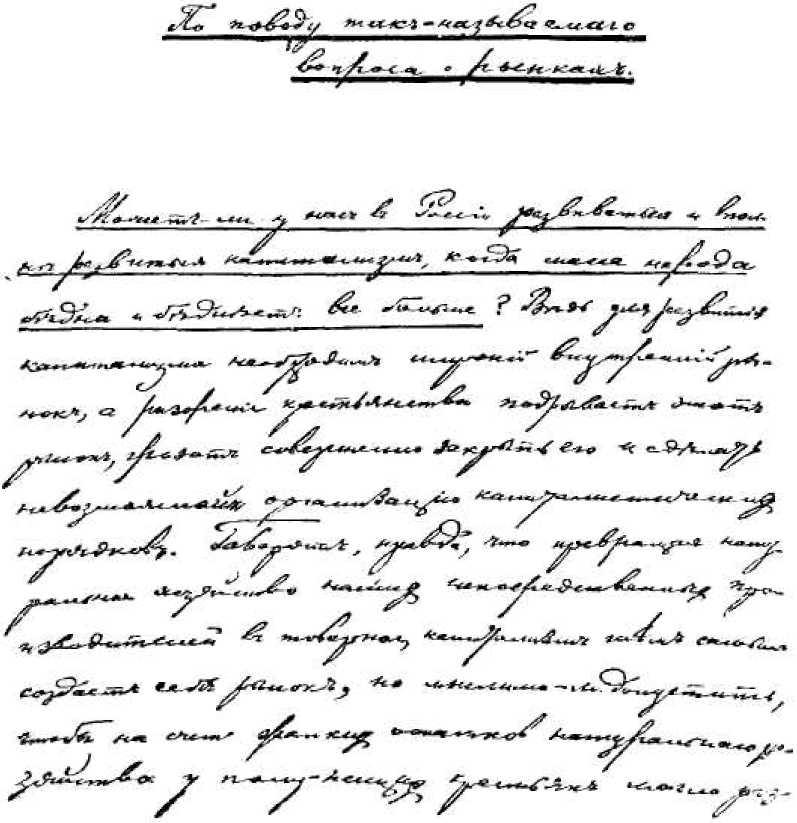 По поводу такъ-называемаго
вопроса о рынкахъ.
Можетъ-ли у насъ в Россіи развиваться и впол-
нѣ развиться капитализмъ, когда масса народа
бѣдна и бѣднѣетъ все больше? Вѣдь для развитія
капитализма необходимъ широкій внутренній ры-
нокъ, а разореніе крестьянства подрываетъ этотъ
рынокъ, грозитъ совершенно закрыть его и сдѣлать
невозможной организацію капиталистических
порядковъ. Говорятъ, правда, что, превращая нату-
ральное хозяйство наших непосредственных про-
изводителей въ товарное, капитализмъ тѣмъ самымъ
создаетъ себѣ рынокъ, но мыслимо-ли допустить,
чтобы на счетъ жалких остатков натуральнаго хо-
зяйства у полу-нищих крестьянъ могло раз-